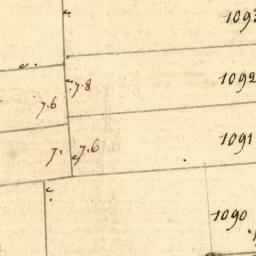 1093
1092
7.8
7.6
1091
7. 7.6
1090